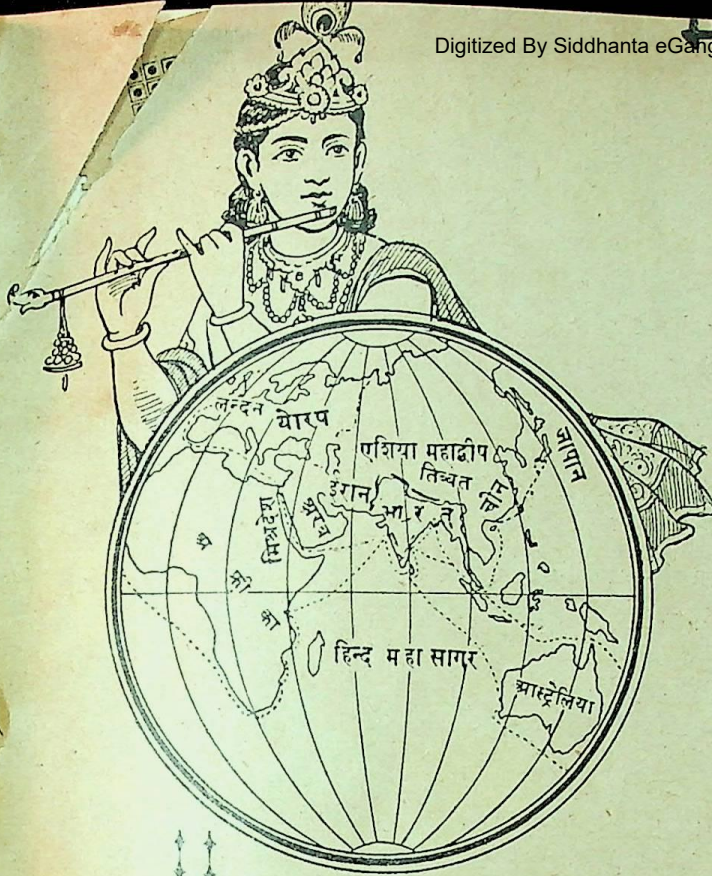 Digitized By Siddhanta eGang
लन्दन
योरप
एशिया महाद्वीप
तिब्बत
चीन
जापान
ईरान
भारत
अरब
मिश्रदेश
अफ्रीका
हिन्द महासागर
आस्ट्रेलिया